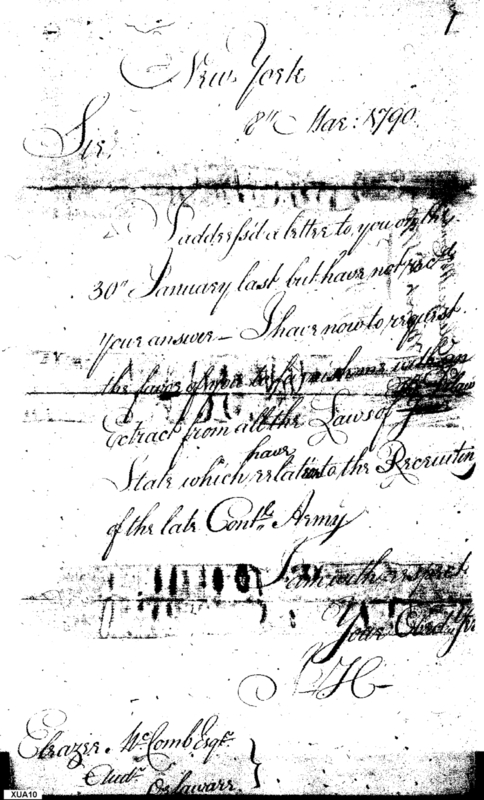 New York
8th Mar: 1790.
Sir,
I address'd a letter to you on the
30th January last but have not rec'd
your answer – I have now to request
the favor of you to furnish me with an
Extract from all the Laws of
State which have relation to the Recruiting
of the late Contl. Army
I am with respect
Your Obedt
Eleazer McComb Esqr.
Audr. Delaware
XUA10